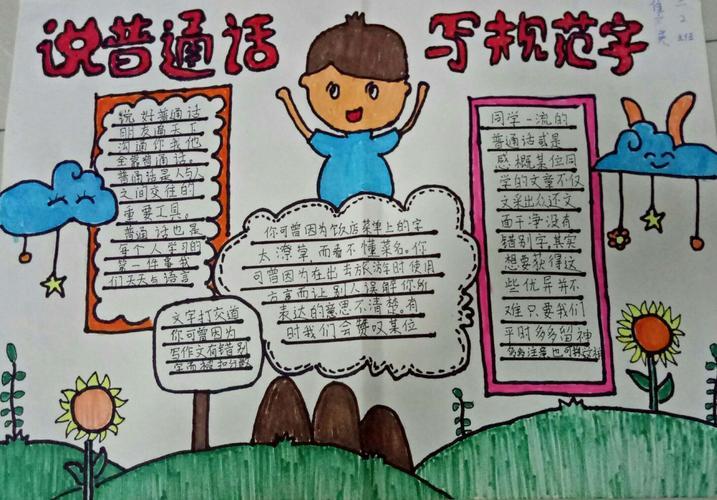 说普通话 写规范字
二2班
说好普通话
朋友遍天下
沟通你我他
全靠普通话。
普通话是人与人
之间交往的
重要工具。
普通话也是
每个人学习的
第一件事我
们天天与语言
文字打交道
你可曾因为
写作文有错别
字而被扣分数
你可曾因为饭店菜单上的字
太潦草,而看不懂菜名。你
可曾因为在出去旅游时使用
方言而让别人误解你所
表达的意思不清楚。有
时我们会赞叹某位
同学一流的
普通话或是
感概某位同
学的文章不仅
文采出众还文
面干净没有
错别字,其实
想要获得这
些优异并不
难只要我们
平时多多留神
多多注意也可